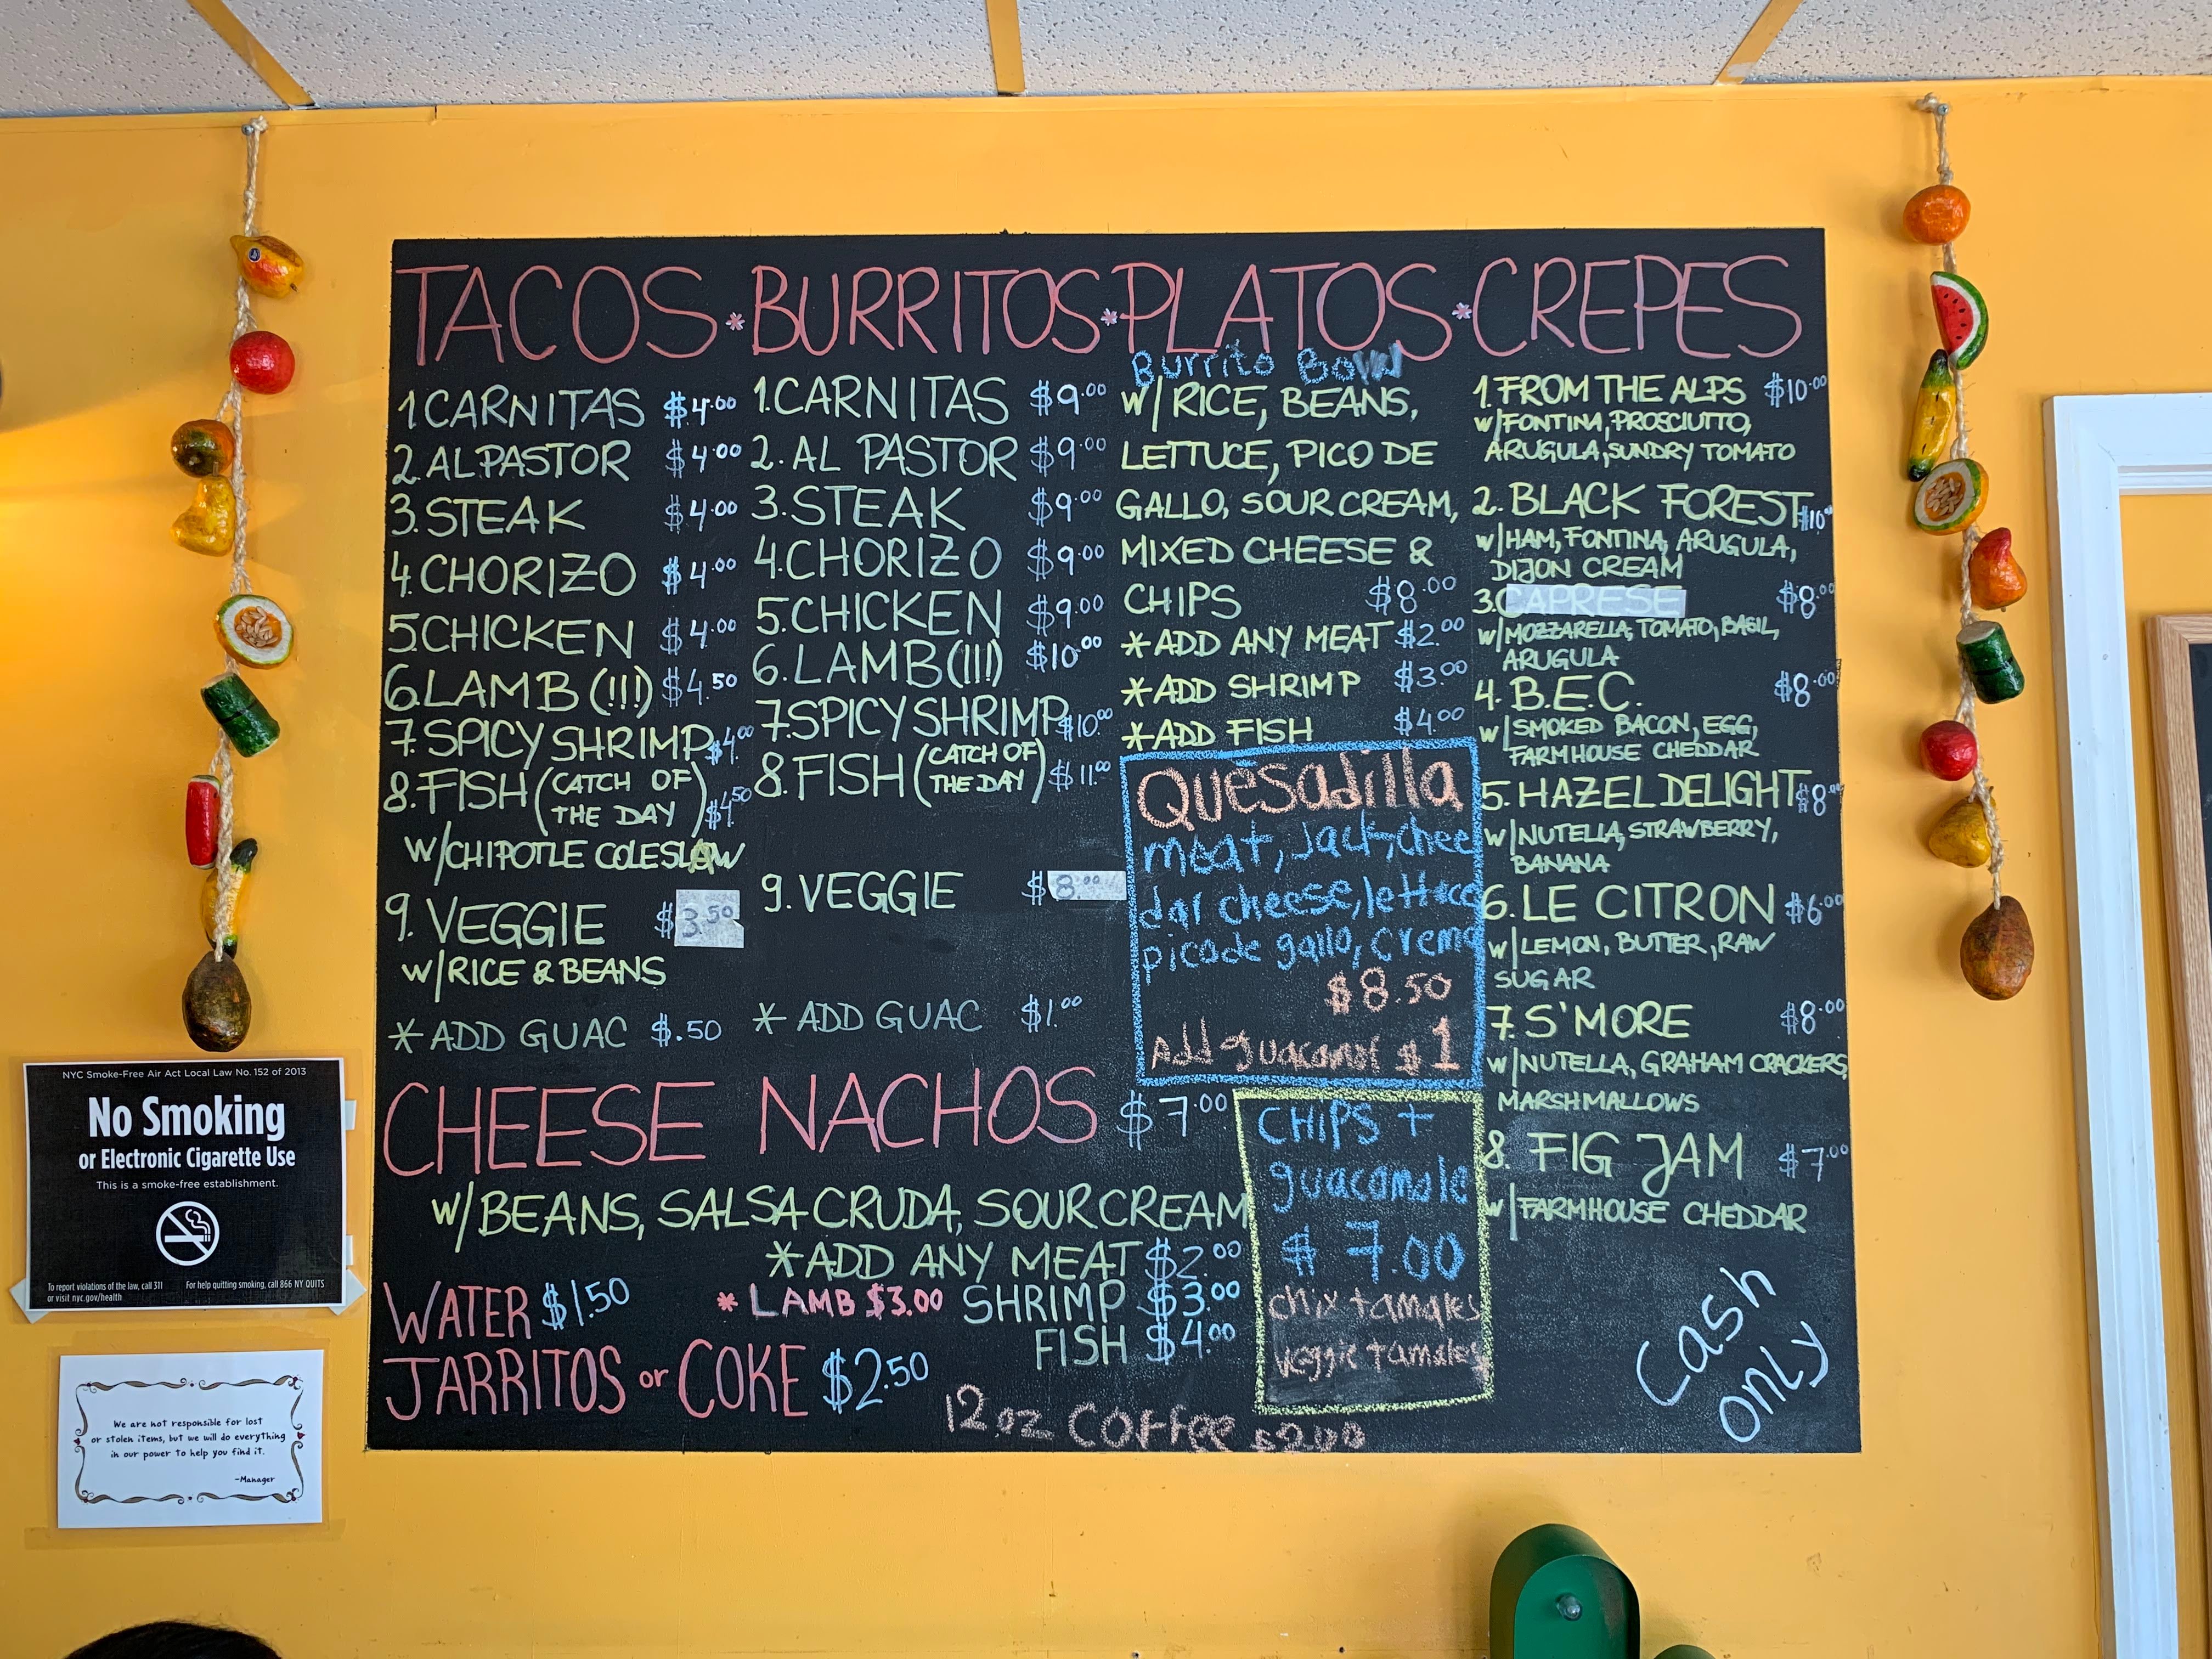 TACOS * BURRITOS * PLATOS * CREPES
1 CARNITAS $4.00
2. AL PASTOR $4.00
3. STEAK $4.00
4. CHORIZO $4.00
5. CHICKEN $4.00
6. LAMB (!!!) $4.50
7. SPICY SHRIMP $4.00
8. FISH (CATCH OF THE DAY) $4.50
w/CHIPOTLE COLESLAW
9. VEGGIE $3.50
w/RICE & BEANS
* ADD GUAC $.50
1. CARNITAS $9.00
2. AL PASTOR $9.00
3. STEAK $9.00
4. CHORIZO $9.00
5. CHICKEN $9.00
6. LAMB (!!!) $10.00
7. SPICY SHRIMP $10.00
8. FISH (CATCH OF THE DAY) $11.00
9. VEGGIE $8.00
* ADD GUAC $1.00
Burrito Bowl
w/RICE, BEANS,
LETTUCE, PICO DE
GALLO, SOUR CREAM,
MIXED CHEESE &
CHIPS $8.00
*ADD ANY MEAT $2.00
*ADD SHRIMP $3.00
*ADD FISH $4.00
Quesadilla
meat, Jack, ched
dar cheese, lettuce
pico de gallo, crema
$8.50
Add guacamol $1
1. FROM THE ALPS $10.00
w/FONTINA, PROSCIUTTO,
ARUGULA, SUNDRY TOMATO
2. BLACK FOREST $10.00
w/HAM, FONTINA, ARUGULA,
DIJON CREAM
3. CAPRESE $8.00
w/MOZZARELLA, TOMATO, BASIL,
ARUGULA
4. B.E.C. $8.00
w/SMOKED BACON, EGG,
FARMHOUSE CHEDDAR
5. HAZEL DELIGHT $8.00
w/NUTELLA, STRAWBERRY,
BANANA
6. LE CITRON $6.00
w/LEMON, BUTTER, RAW
SUGAR
7. S'MORE $8.00
w/NUTELLA, GRAHAM CRACKERS,
MARSHMALLOWS
8. FIG JAM $7.00
w/FARMHOUSE CHEDDAR
CHEESE NACHOS $7.00
w/BEANS, SALSA CRUDA, SOUR CREAM
*ADD ANY MEAT $2.00
* LAMB $3.00 SHRIMP $3.00
FISH $4.00
CHIPS +
guacamole
$ 7.00
chix tamales
veggie tamales
WATER $1.50
JARRITOS or COKE $2.50
12 oz Coffee $2.00
Cash
only
NYC Smoke-Free Air Act Local Law No. 152 of 2013
No Smoking
or Electronic Cigarette Use
This is a smoke-free establishment.
To report violations of the law, call 311
or visit nyc.gov/health
For help quitting smoking, call 866 NY QUITS
We are not responsible for lost
or stolen items, but we will do everything
in our power to help you find it.
-Manager